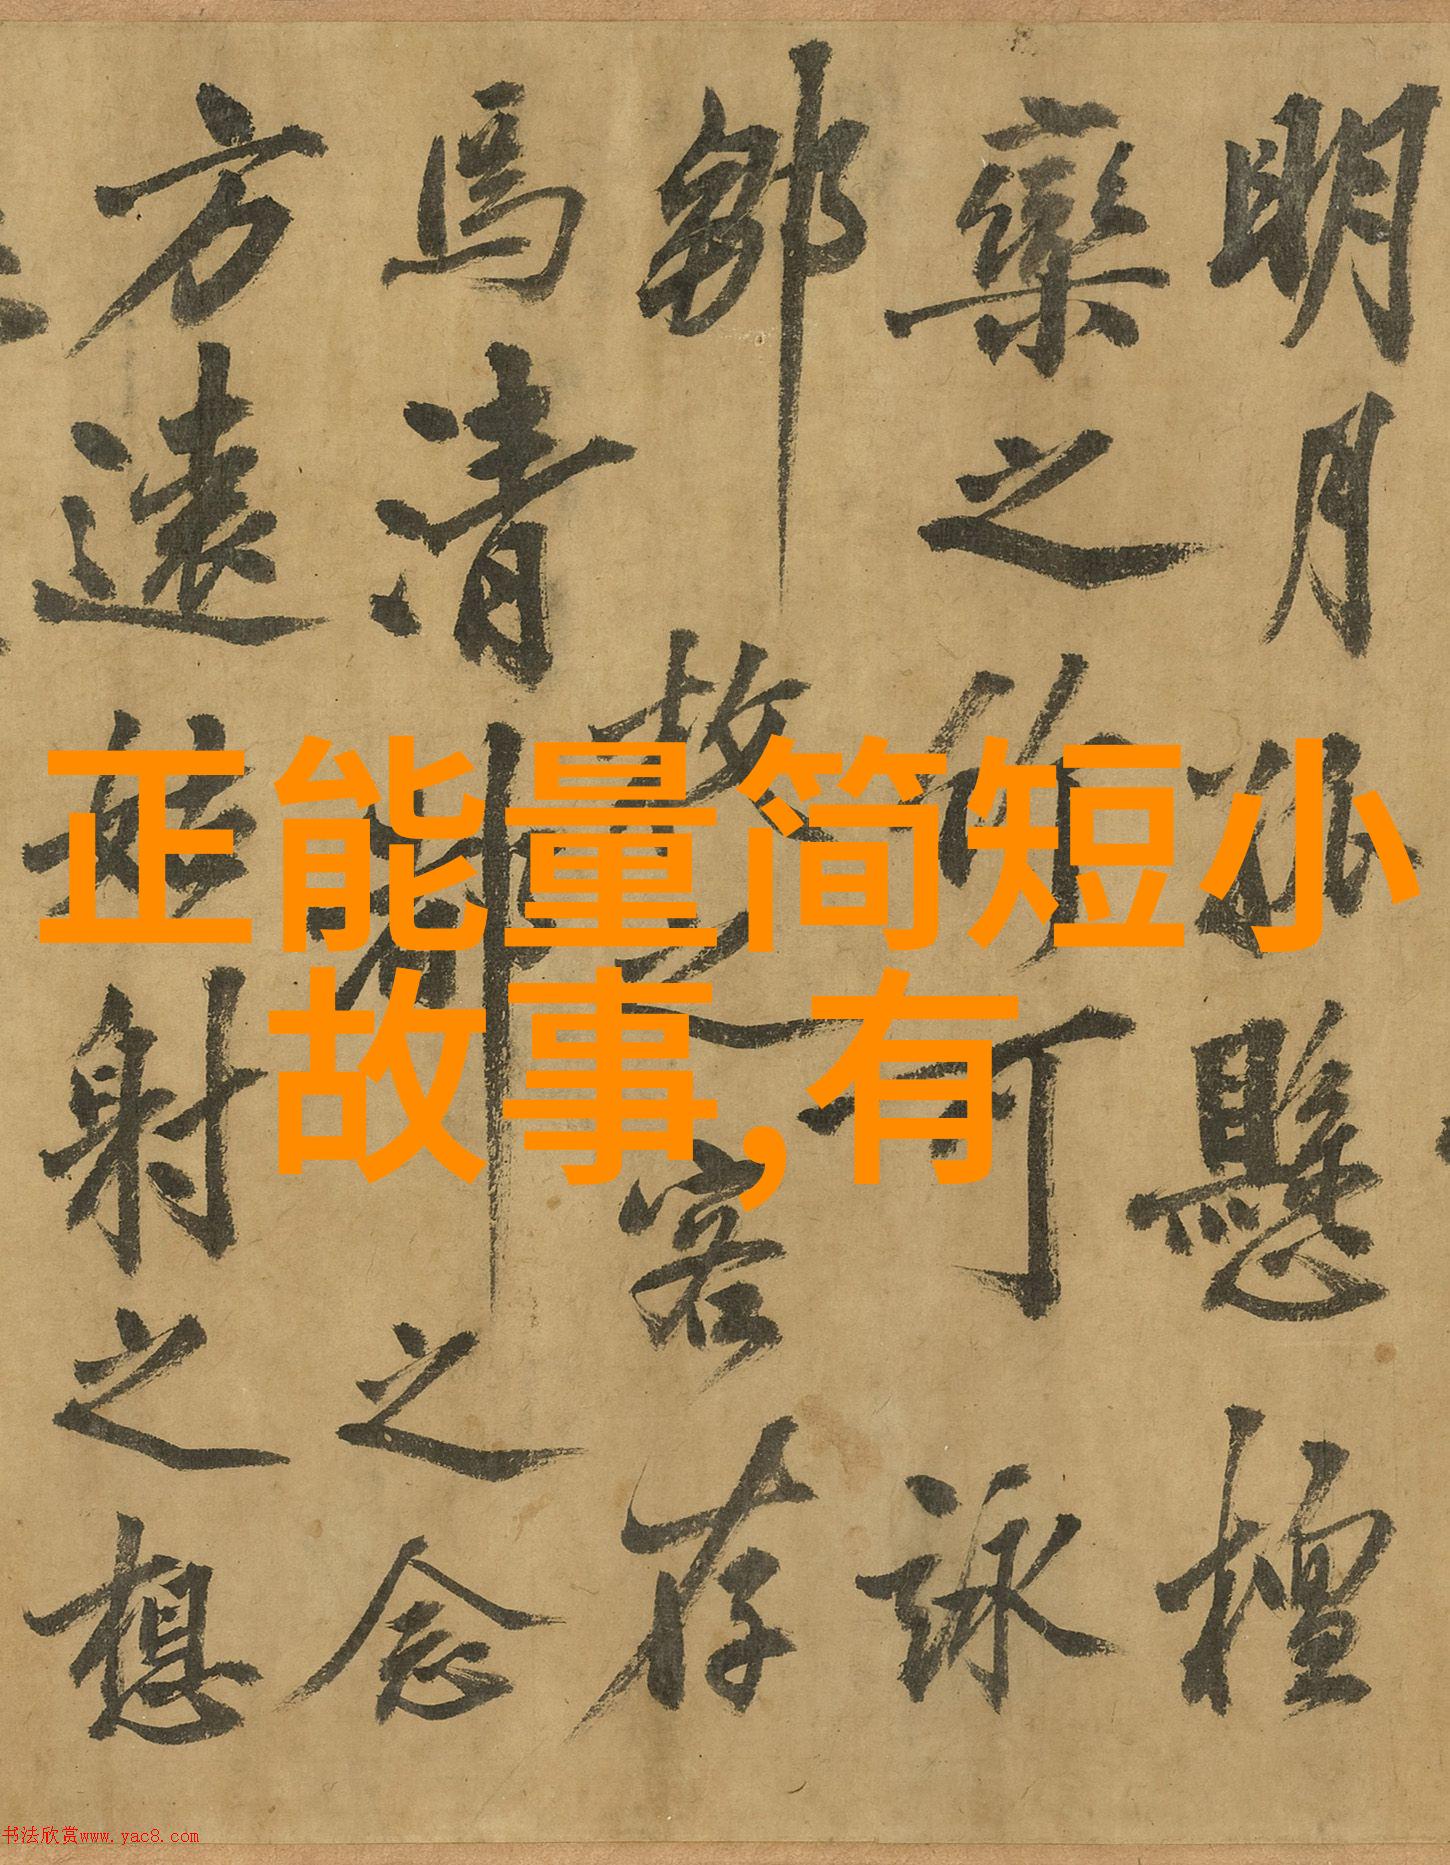 明月孤懸檀
欒之作可詠
鄒枚之客存
焉清都之念
方遠姑射之想
正能量简短小
故事,有
书法欣赏www.yac8.com